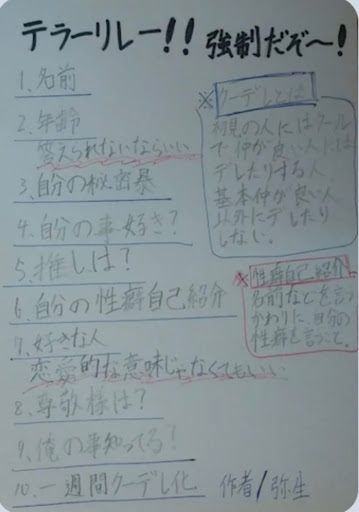 テラーリレー!! 強制だぞ〜!
1.名前
2.年齢
答えられないならいい
3.自分の秘密暴
4.自分の事好き?
5.推しは?
6.自分の性癖自己紹介
7.好きな人
恋愛的な意味じゃなくてもいい
8.尊敬様は?
9.俺の事知ってる?
10.一週間クーデレ化
※クーデレとは
初見の人にはクール
で仲が良い人には
デレしたりする人、
基本仲が良い人
以外にデレたり
しない。
※性癖自己紹介
名前などを言う
かわりに、自分の
性癖を言うこと。
作者/弥生